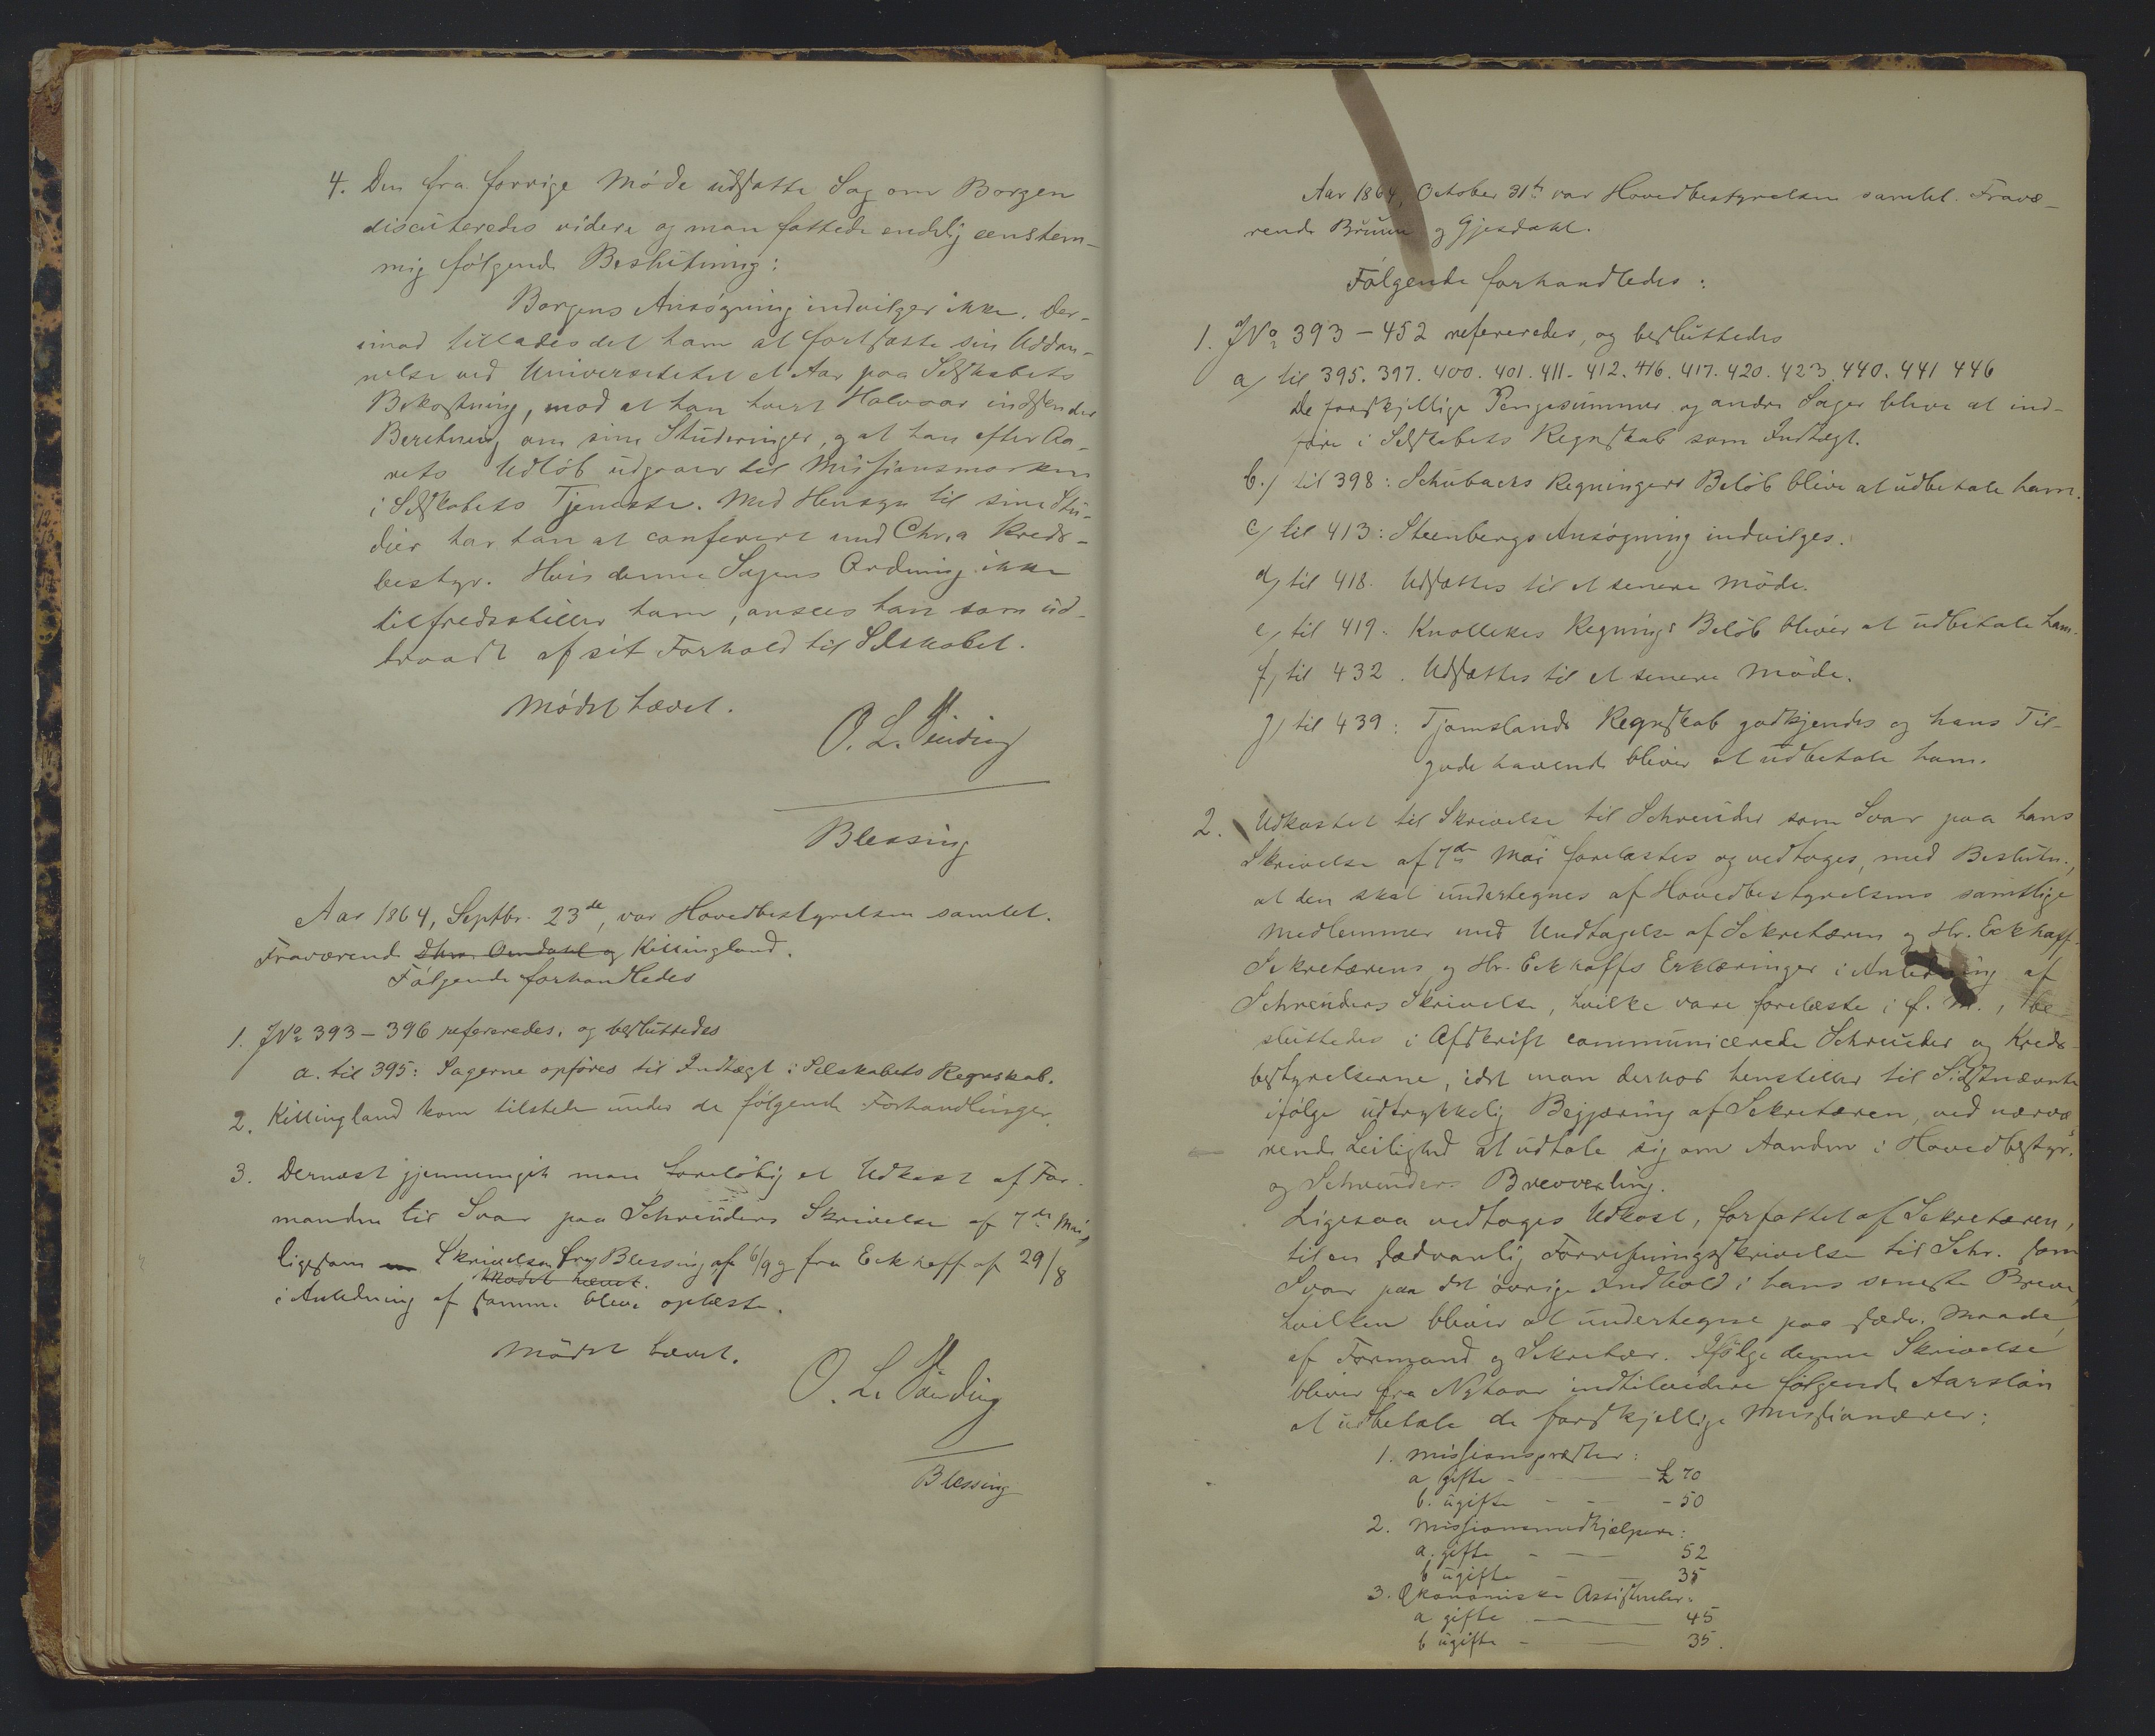 4. Den fra forrige Møde udsatte Sag om Borgen
discuteredes videre og man fattede endelig eenstem-
mig følgende Beslutning:
Borgens Ansøgning indvilges ikke. Der-
imod tillades det ham at fortsætte sin Uddan-
nelse ved Universitetet et Aar paa Selskabets
Bekostning, mod at han hvert Halvaar indsender
Beretning om sine Studeringer, og at han efter Aa-
rets Udløb udgaaer til Missionsmarken
i Selskabets Tjeneste. Med Hensyn til sine Stu-
dier har han at conferere med Chr.a Kreds-
bestyr. Hvis denne Sagens Ordning ikke
tilfredsstiller ham, ansees han som ud-
traadt af sit Forhold til Selskabet.
Mødet hævet.
O. L. Sinding
Blessing
Aar 1864, Septbr. 23de, var Hovedbestyrelsen samlet.
Fraværende Dhrr. Omdahl og Killingland.
Følgende forhandledes
1. JNo 393 – 396 refereredes, og besluttedes
a. til 395: Sagerne opføres til Indtægt i Selskabets Regnskab.
2. Killingland kom tilstede under de følgende Forhandlinger.
3. Dernæst gjennemgik man foreløbig et Udkast af For-
manden til Svar paa Schreuders Skrivelse af 7de Mai,
ligesom Skrivelser fra Blessing af 6/9 og fra Eckhoff af 29/8
Mødet hævet.
i Anledning af samme bleve oplæste.
Mødet hævet.
O. L. Sinding
Blessing
Aar 1864, October 31te var Hovedbestyrelsen samlet. Fravæ-
rende Bruun og Gjesdahl.
Følgende forhandledes:
1. JNo 393 – 452 refereredes, og besluttedes
a) til 395. 397. 400. 401. 411. 412. 416. 417. 420. 423. 440. 441 446
De forskjellige Pengesummer og andre Sager blive at ind-
føre i Selskabets Regnskab som Indtægt.
b.) til 398: Schubacks Regningers Beløb blive at udbetale ham.
c) til 413: Steenbergs Ansøgning indvilges.
d) til 418. Udsættes til et senere Møde.
e) til 419. Regnings Beløb bliver at udbetale ham.
f) til 432. Udsættes til et senere Møde.
g) til 439: Tjomslands Regnskab godkjendes og hans Til-
gode havende bliver at udbetale ham.
2. Udkastet til Skrivelse til Schreuder som Svar paa hans
Skrivelse af 7de Mai forelæstes og vedtoges, med Beslutn.,
at den skal undertegnes af Hovedbestyrelsens samtlige
Medlemmer med Undtagelse af Sekretæren og Hr. Eckhoff.
Sekretærens og Hr. Eckhoffs Erklæringer i Anledning af
Schreuders Skrivelse, hvilke vare forelæste i f. M., be-
sluttedes i Afskrift communicerede Schreuder og Kreds-
bestyrelserne, idet man derhos henstiller til Sidstnævnte
ifølge udtrykkelig Begjæring af Sekretæren, ved nærvæ-
rende Leilighed at udtale sig om Aanden i Hovedbestyr.s
og Schreuders Brevvexling.
Ligesaa vedtoges Udkast, forfattet af Sekretæren,
til en sædvanlig Forretningsskrivelse til Schr. som
Svar paa det øvrige Indhold i hans seneste Breve,
hvilken bliver at undertegne paa sædv. Maade,
af Formand og Sekretær. Ifølge denne Skrivelse
bliver fra Nytaar indtilvidere følgende Aarsløn
at udbetale de forskjellige Missionærer:
1. Missionsprester:
a gifte - £ 70
b. ugifte - - 50
2. Missionsmedhjælpere:
a. gifte - 52
b ugifte - 35
3. Økonomiske Assistenter:
a gifte - 45
b ugifte - 35.